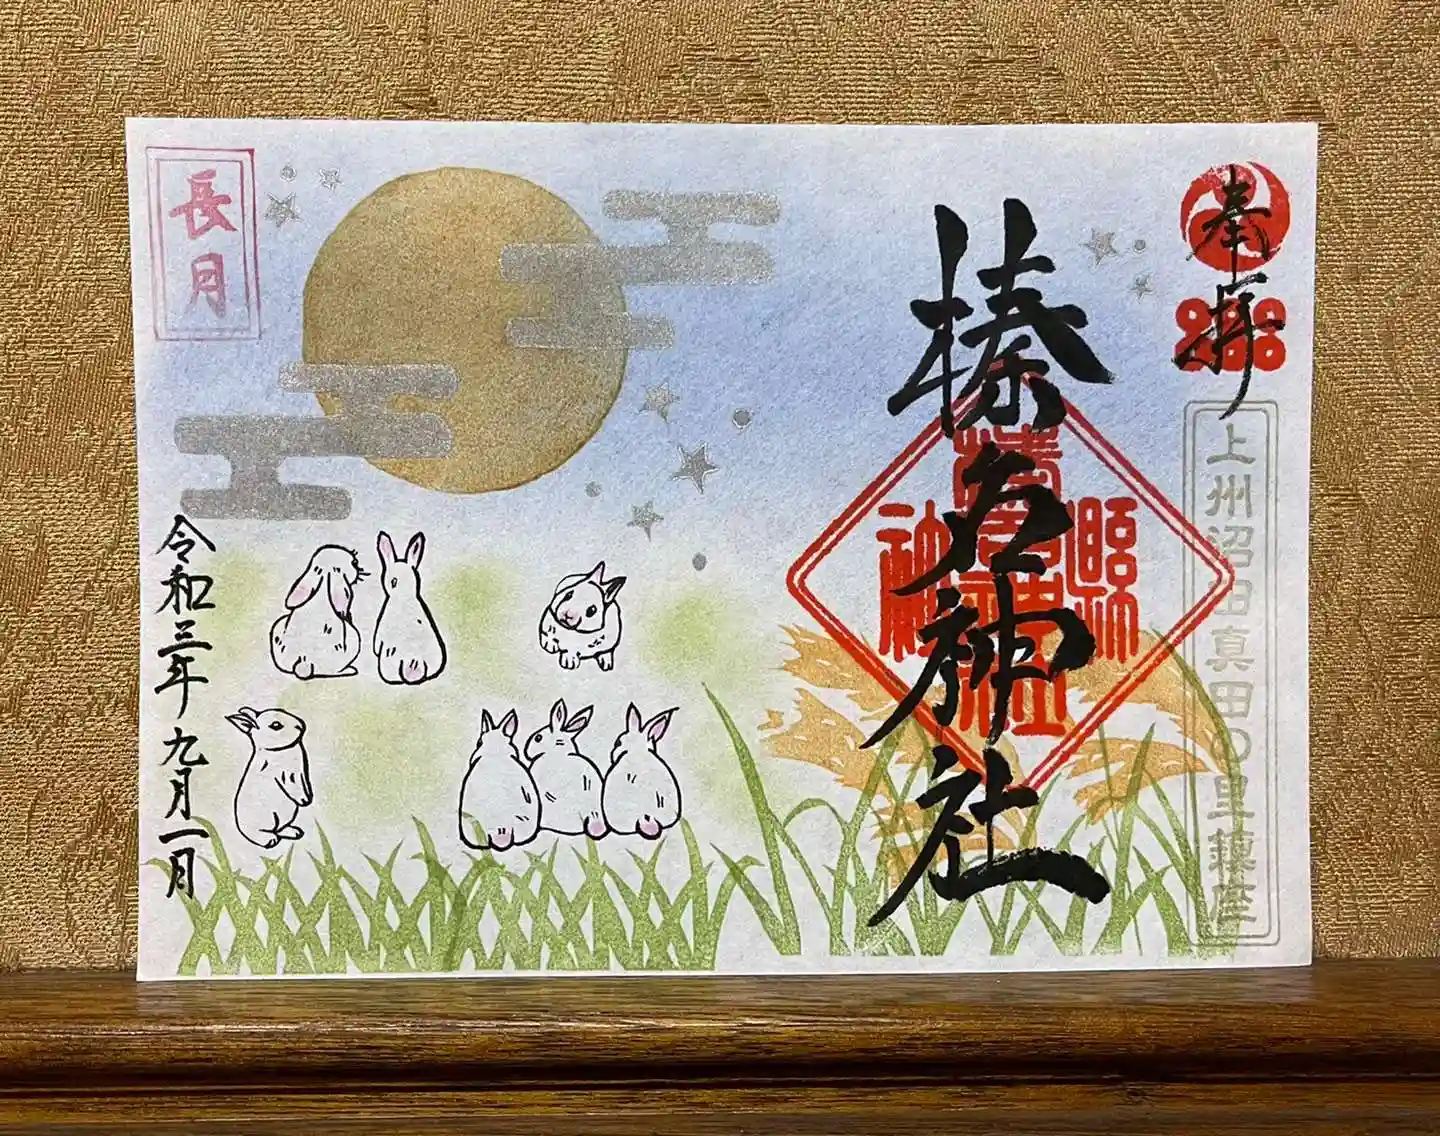 奉拝
上州沼田真田の里鎮座
榛名神社
長月
令和三年九月一日